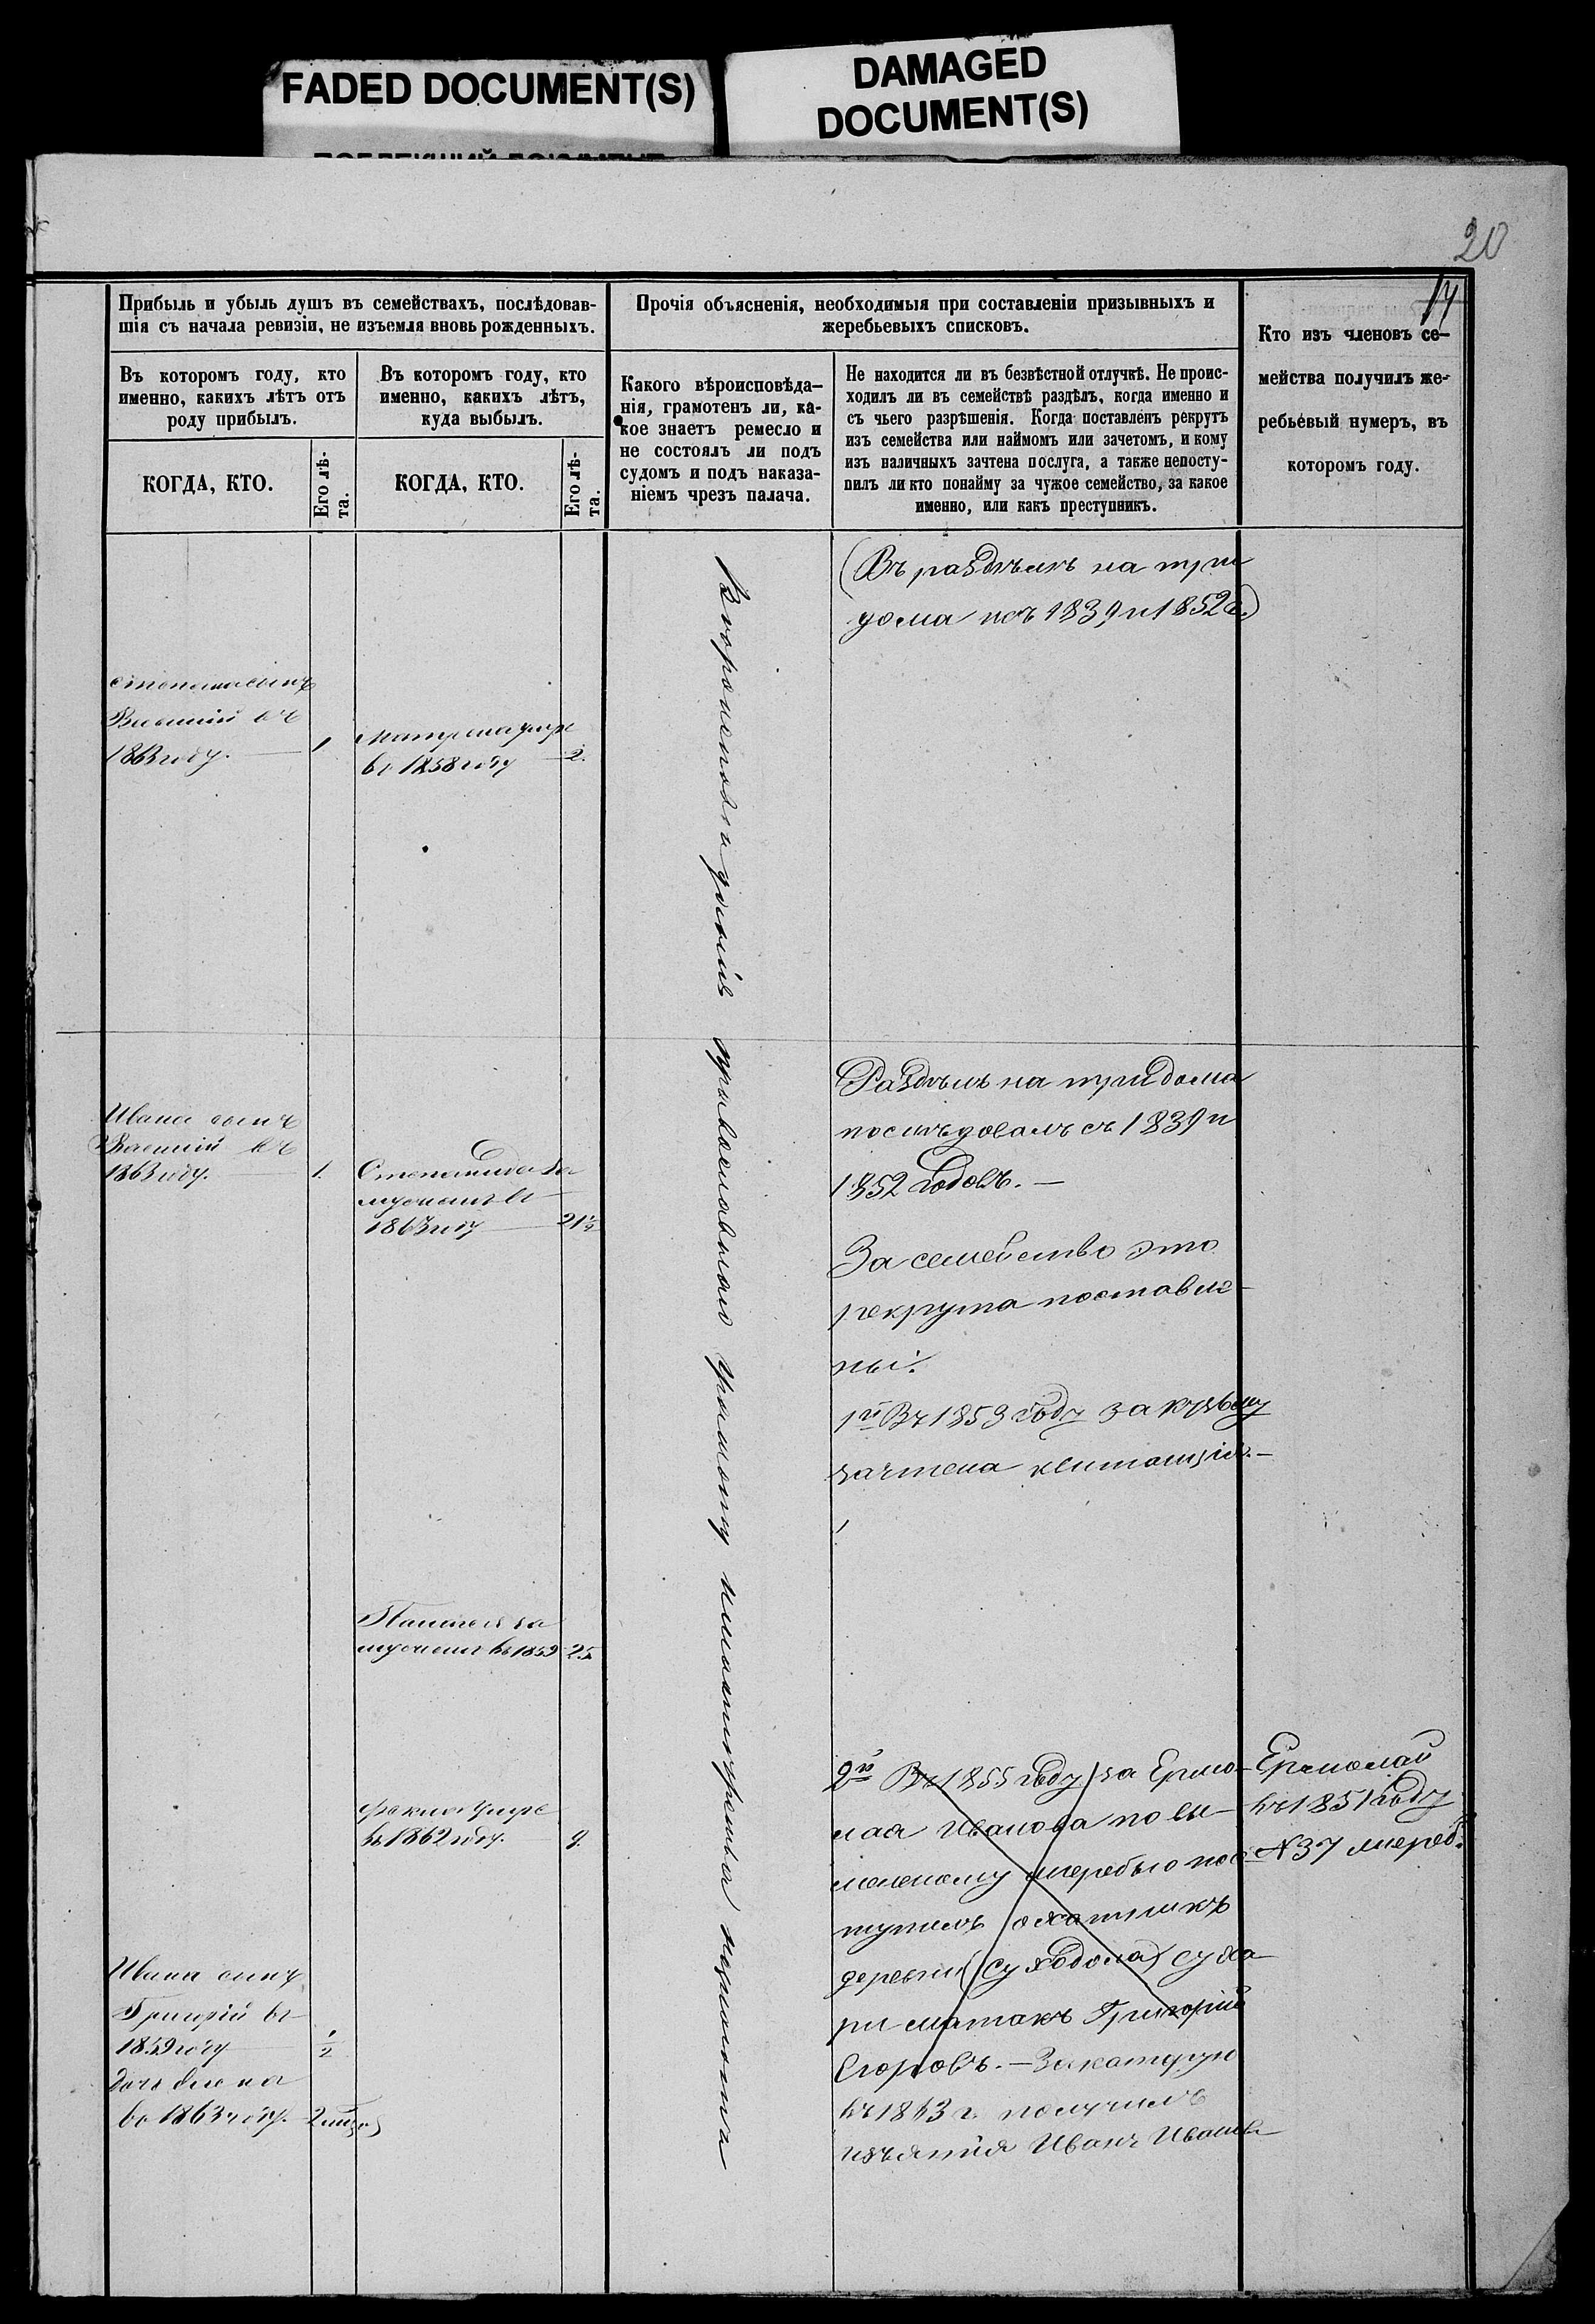 FADED DOCUMENT(S)
DAMAGED
DOCUMENT(S)
20
17
Прибыль и убыль душъ въ семействахъ, послѣдовав-
шія съ начала ревизіи, не изъемля вновь рожденныхъ.
Прочія объясненія, необходимыя при составленіи призывныхъ и
жеребьевыхъ списковъ.
Кто изъ членовъ се-
мейства получилъ же-
ребьевый нумеръ, въ
которомъ году.
Въ которомъ году, кто
именно, какихъ лѣтъ отъ
роду прибылъ.
Въ которомъ году, кто
именно, какихъ лѣтъ,
куда выбылъ.
Какого вѣроисповѣда-
нія, грамотенъ ли, ка-
кое знаетъ ремесло и
не состоялъ ли подъ
судомъ и подъ наказа-
ніемъ чрезъ палача.
Не находится ли въ безвѣстной отлучкѣ. Не проис-
ходилъ ли въ семействѣ раздѣлъ, когда именно и
съ чьего разрѣшенія. Когда поставленъ рекрутъ
изъ семейства или наймомъ или зачетомъ, и кому
изъ наличныхъ зачтена послуга, а также непосту-
пилъ ли кто понайму за чужое семейство, за какое
именно, или какъ преступникъ.
КОГДА, КТО.
Его лѣ-
та.
КОГДА, КТО.
Его лѣ-
та.
(Въ раздѣлѣ на три
дома съ 1839 и 1852 г.)
Степана сынъ
Василій въ
1863 году. 1
Матрена умре
въ 1858 году 2.
Вѣроисповѣданія православнаго грамоту
Раздѣлъ на три дома
послѣдовалъ съ 1839 и
1852 годовъ. —
Ивана сынъ
Василій въ
1863 году. 1.
Степанида за
мужемъ въ
1863 году 21½
За семейство это
рекрута поставле-
ны:
1й Въ 1853 году за Кузьму
зачтена квитанція. —
Пелагея за
мужемъ въ 1859 25
2й Въ 1855 году за Ермо-
лая Иванова по вы-
нутому жеребью пос-
тупилъ охотникъ
деревни (Суходола)
Григорій
Егоровъ. —
въ 1843 г. получилъ
Иванъ Иванов
Ермолай
въ 1851 году
№ 37 жереб.
умре
въ 1862 году. 9
Ивана сынъ
Григорій въ
1859 году ½
дочь Елена
въ 1863 году. 2